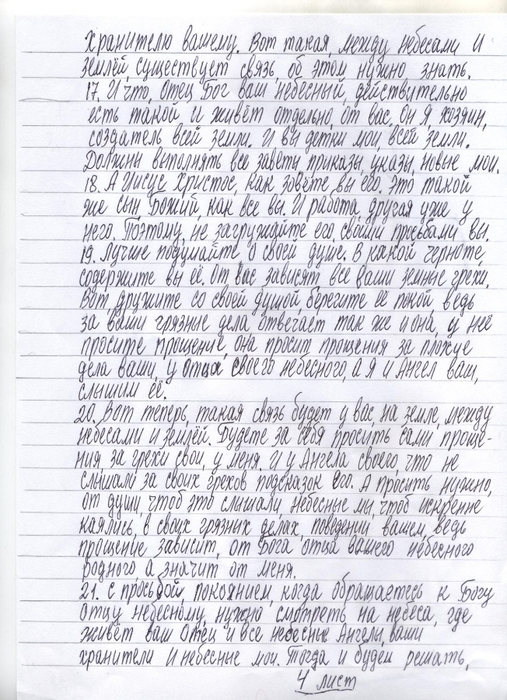 Хранителю вашему. Вот такая, между небесами и
землёй, существует связь, об этом нужно знать.
17. И что, отец Бог ваш небесный, действительно
есть такой и живёт отдельно, от вас, он Я хозяин,
создатель всей земли. И вы детки мои, всей земли.
Должны выполнять все заветы, приказы, указы, новые мои.
18. А Иисус Христос, как зовёте вы его, это такой
же сын Божий, как все вы. И работа, другая уже у
него. Поэтому, не загружайте его, своими просьбами вы.
19. Лучше подумайте о своей душе. В какой черноте,
содержите вы её. От вас зависят все ваши земные грехи,
Вот, дружите со своей душой, берегите её покой, ведь
за ваши грязные дела отвечает так же и она, у неё
просите прощение, она просит прощения за плохие
дела ваши, у отца своего небесного, а Я и Ангел ваш,
слышим её.
20. Вот теперь, такая связь будет у вас, на земле, между
небесами и землёй. Будете за себя просить сами проще-
ния за грехи свои, у меня. И у Ангела своего, что не
слышали за своих грехов подсказок его. А просить нужно,
от души, чтоб это слышали, небесные мы, чтоб искренне
каялись, в своих грязных делах, поведении вашем, ведь
прощение зависит, от Бога отца вашего небесного
родного, а значит от меня.
21. С просьбой, покоянием, когда обращаетесь к Богу
Отцу небесному, нужно смотреть на небеса, где
живёт ваш Отец и все небесные Ангелы, ваши
хранители И небесные мои. Тогда и будем решать,
4 лист